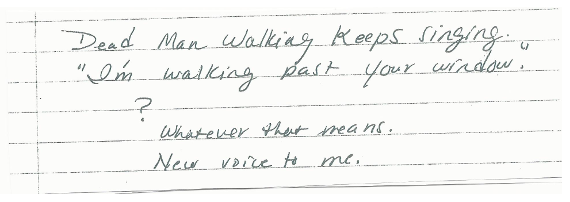 Dead Man Walking Keeps singing.
"I'm walking past your window."
?
Whatever that means.
New voice to me.